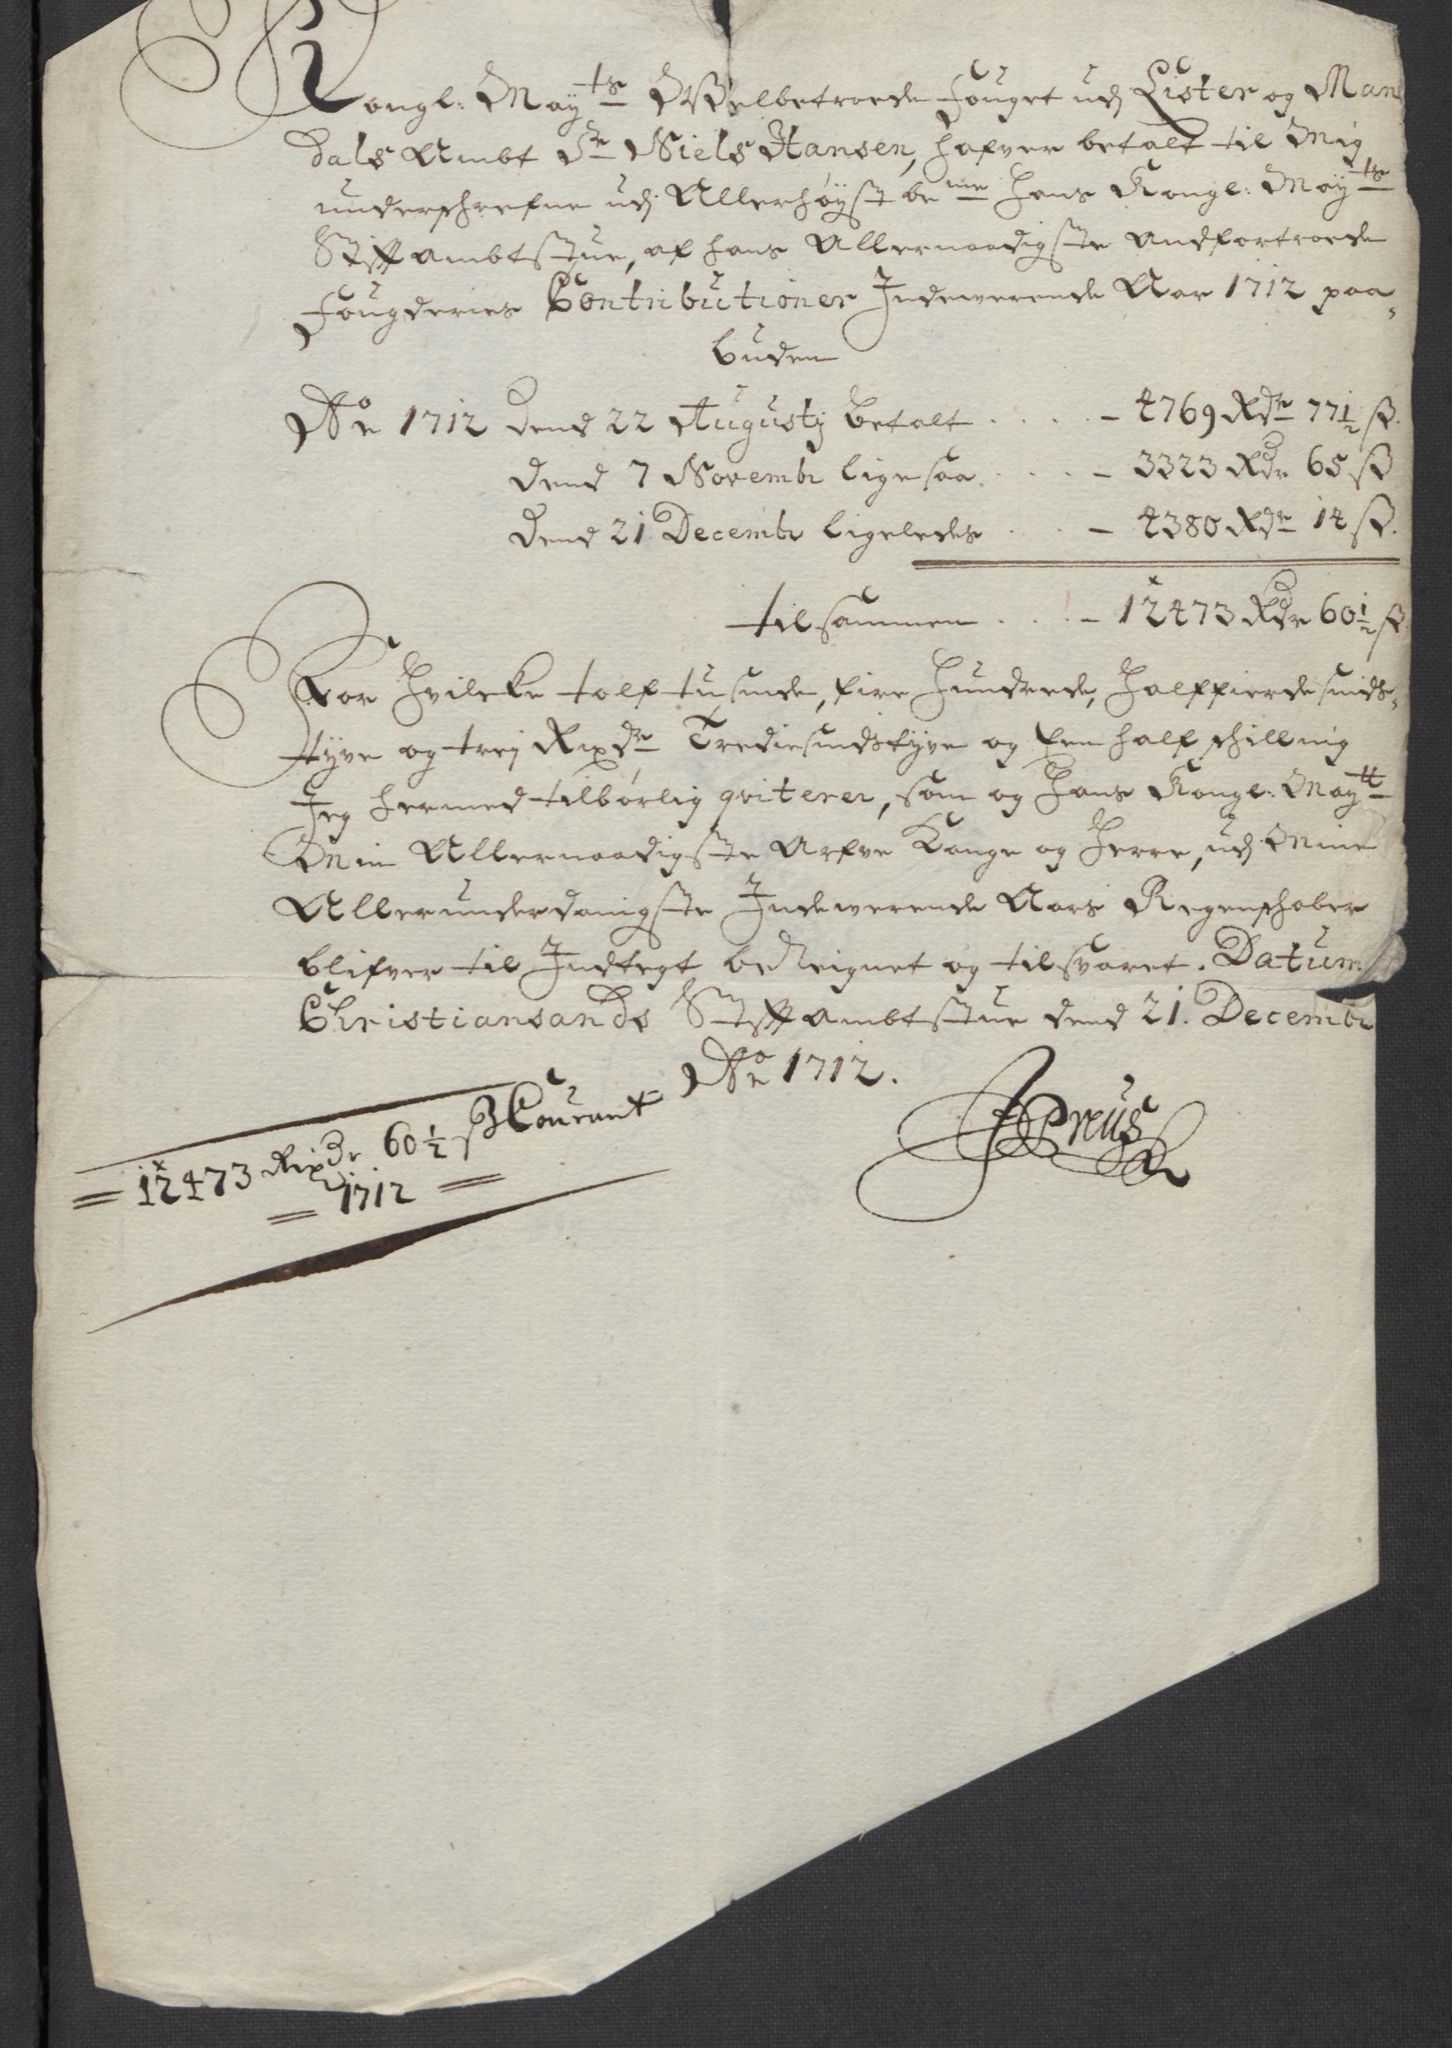 Kongl: May<sup>ts</sup> Welbetroede Fouget udj Lister og Man
dals Ambt Sr Niels Hansen, hafver betalt til Mig
underschrefne udj Allerhøyst be<sup>me</sup> Hans Kongl: May<sup>ts</sup>
Stiftambtstue, af hans Allernaadigste Andfortroede
Fougderies Contributioner Indeværende Aar 1712 paa-
buden
Ao 1712 Dend 22 Augustj Betalt .... – 4769 Rdr 77½ ß.
Dend 7 Novembr ligesaa .... – 3323 Rdr 65 ß
Dend 21 Decembr ligeledes .. – 4380 Rdr 14 ß.
tilsammen ... – 12473 Rdr 60½ ß
For Hvilcke tolf tusinde, fire Hundrede, Halffierdesinds-
tyve og trej Rixdr Trediesindstyve og Een half schilling
Jeg hermed tilbørlig qviterer, som og Hans Kongl: May<sup>tt</sup>
Min Allernaadigste Arfve Konge og Herre, udj Mine
Allerunderdanigste Indeværende Aars Regenschaber
blifver til Indtegt beReignet og tilsvaret. Datum
Christiansands Stiftambtstue dend 21. Decembr
Ao 1712.
JPreüs
12473 Rixdr 60½ ß Courant
1712